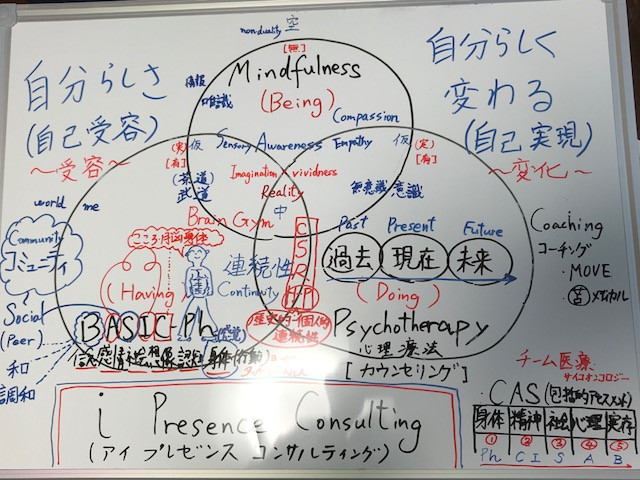 nonduality 空
[無]
Mindfulness
(Being)
情報
唯識
Compassion
自分らしさ
(自己受容)
〜受容〜
自分らしく
変わる
(自己実現)
〜変化〜
(実)仮
[有]
Sensory Awareness Empathy
仮(定)
[有]
Imagination × vividness
Reality
中
(茶道)
武道
無意識 意識
world me
Brain Gym
Community
コミュニティ
こころ・脳・身体
連続性
Continuity
(Having)
Past Present Future
過去 現在 未来
(Doing)
Coaching
コーチング
・MOVE
Social
(Peer)
和
調和
BASIC-Ph
連続性
Psychotherapy
心理療法
[カウンセリング]
チーム医療
サイコオンコロジー
i Presence Consulting
(アイ プレゼンス コンサルティング)
・CAS(包括的アセスメント)
身体 精神 社会 心理 実存
① ② ③ ④ ⑤
Ph C I S A B